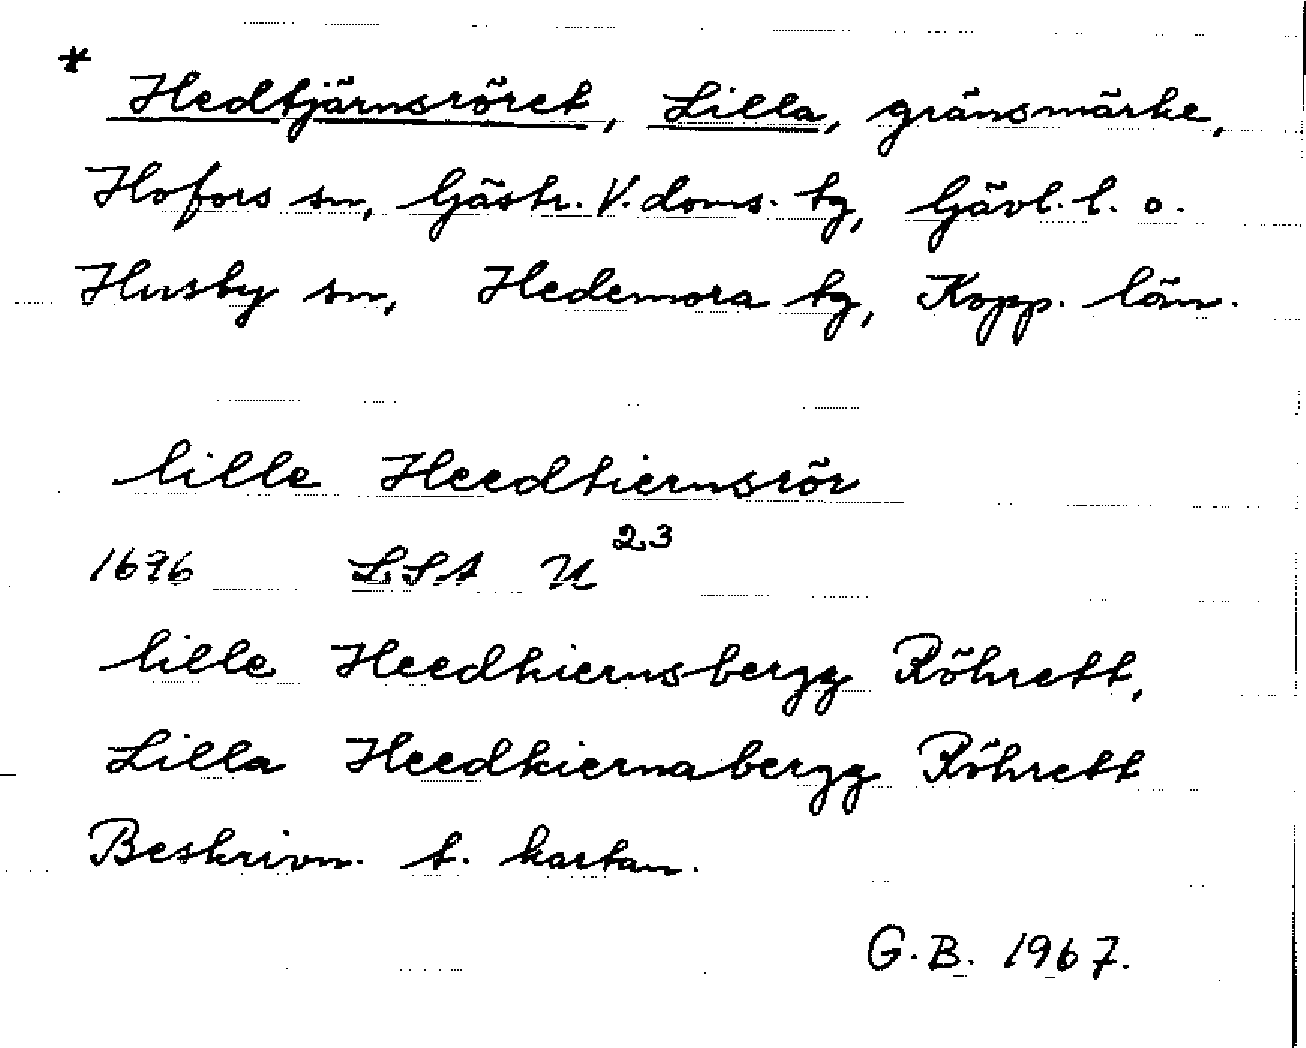 * Hedtjärnsröret, Lilla, gränsmärke,
Hofors sn, Gästr. V. doms. tg, Gävl. l. o.
Husby sn, Hedemora tg, Kopp. län.
lille Heedtiernsrör
1696 LSA U²³
lille Heedkiernsbergz Röhrett,
Lilla Heedkiernabergz Röhrett
Beskrivn. t. kartan.
G.B. 1967.